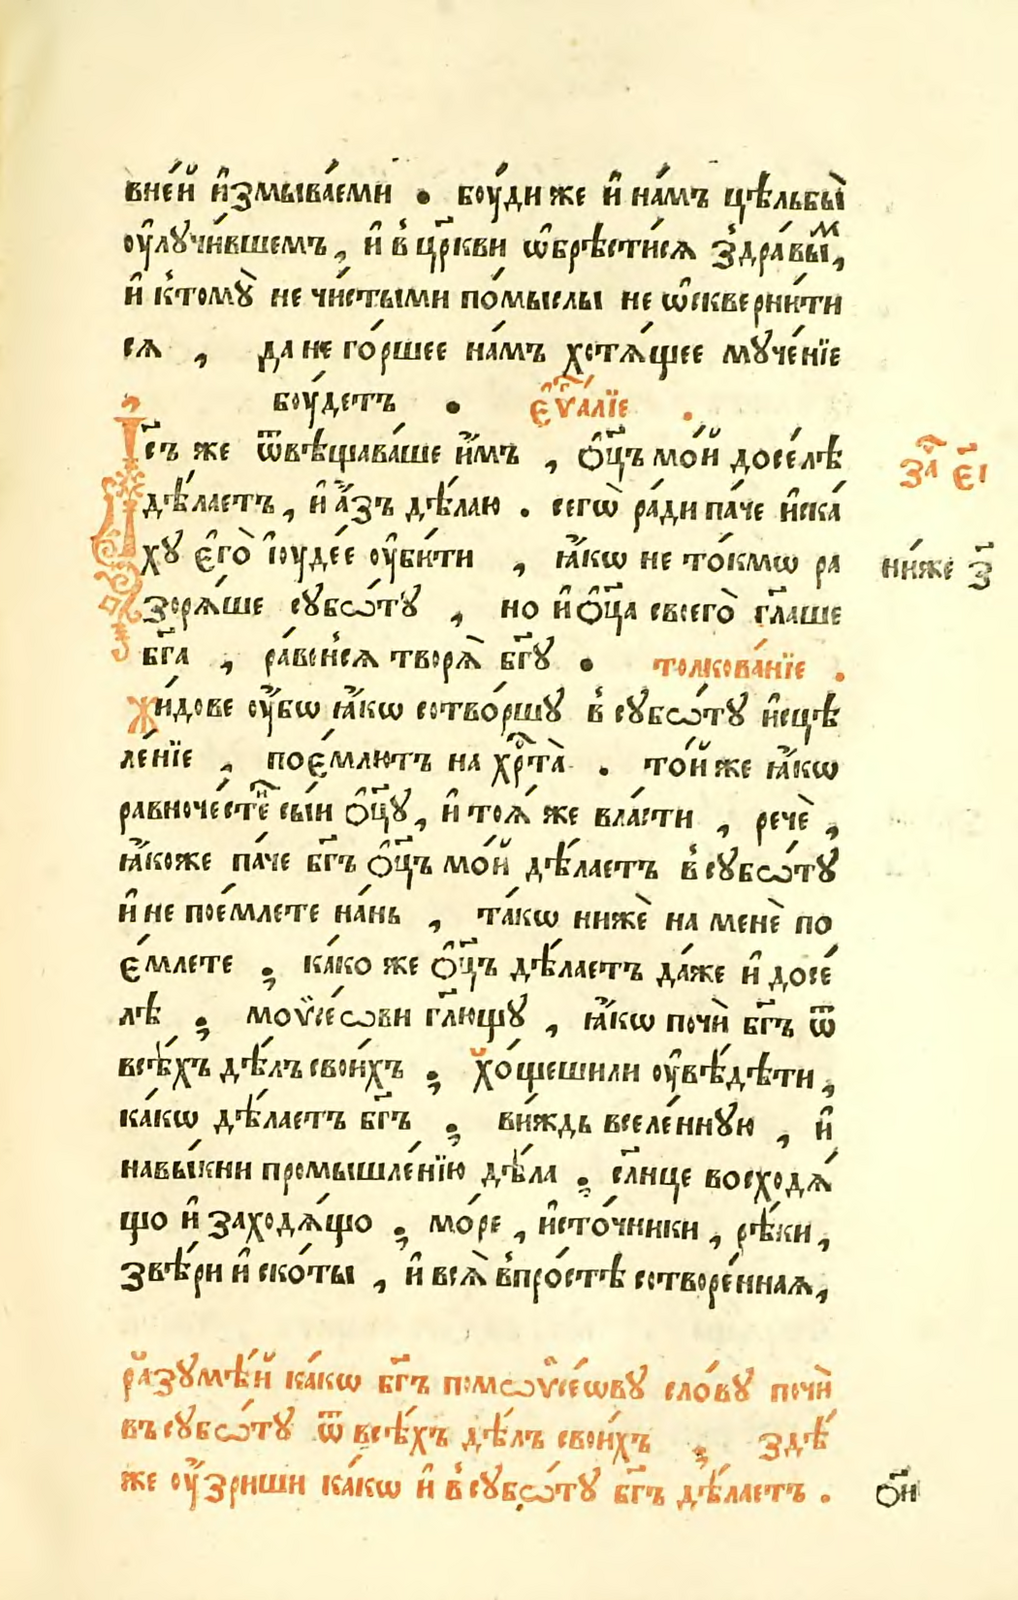 вне́й и҆змыва́еми . боу́ди же и҆ на́мъ цѣльбы̀
оу҆лучи́вшемъ , и҆ в̾ цр҃кви ѡ҆брѣ́стися здра́вымъ ,
и҆ к̾тому̀ не чи́стыми по́мыслы не ѡ҆скверни́ти
ся , да не го́ршее на́мъ хотѧ́щее муче́нїе
боу́детъ . є҆ѵⷢ҇а́лїе .
І҆с҃ъ же ѿвѣщава́ше и҆̀мъ , ѻ҆ц҃ъ мо́й досе́лѣ
дѣ́лаетъ , и҆ а҆́зъ дѣ́лаю . сегѡ̀ ра́ди па́че и҆ска́
ху є҆го̀ і҆оуде́е оу҆би́ти , ꙗ҆́кѡ не то́кмѡ ра
зорѧ́ше субѡ́ту , но и҆ ѻ҆ц҃а своего̀ гл҃аше
бг҃а , ра́венсѧ творѧ̀ бг҃у . толкова́нїе .
Жи́дове оу҆́бѡ ꙗ҆́кѡ сотво́ршу в̾ субѡ́ту и҆сцѣ
ле́нїе , пое́млютъ на хрⷭ҇та̀ . то́й же ꙗ҆́кѡ
равноче́стенъ сы́и ѻ҆ц҃у , и҆ тоѧ́ же вла́сти , речѐ ,
ꙗ҆́коже па́че бг҃ъ ѻ҆ц҃ъ мо́й дѣ́лаетъ в̾ субѡ́ту
и҆ не пое́млете на́нь , та́кѡ нижѐ на менѐ по
є́млете ; ка́ко же ѻ҆ц҃ъ дѣ́лаетъ да́же и҆ досе́
лѣ ; моѷсе́ѡви гл҃ющу , ꙗ҆́кѡ почѝ бг҃ъ ѿ
всѣ́хъ дѣ́лъ свои́хъ ; хо́щешили оу҆вѣ́дѣти ,
ка́кѡ дѣ́лаетъ бг҃ъ ; ви́ждь вселе́нную , и҆
навы́кни промышле́нїю дѣ́ла ; сл҃нце восходѧ́
що и҆ заходѧ́що ; мо́ре , и҆сто́чники , рѣ́ки ,
звѣ́ри и҆ ско́ты , и҆ всѧ̀ в̾про́стѣ сотворе́нная ,
разумѣ́й ка́кѡ бг҃ъ помѡѷсе́ѡву сло́ву почѝ
въ субѡ́ту ѿ всѣ́хъ дѣ́лъ свои́хъ ; здѣ́
же оу҆́зриши ка́кѡ и҆ в̾ субѡ́ту бг҃ъ дѣ́лаетъ .
за҃ є҃і
ни́же з҃
ѻ҃и